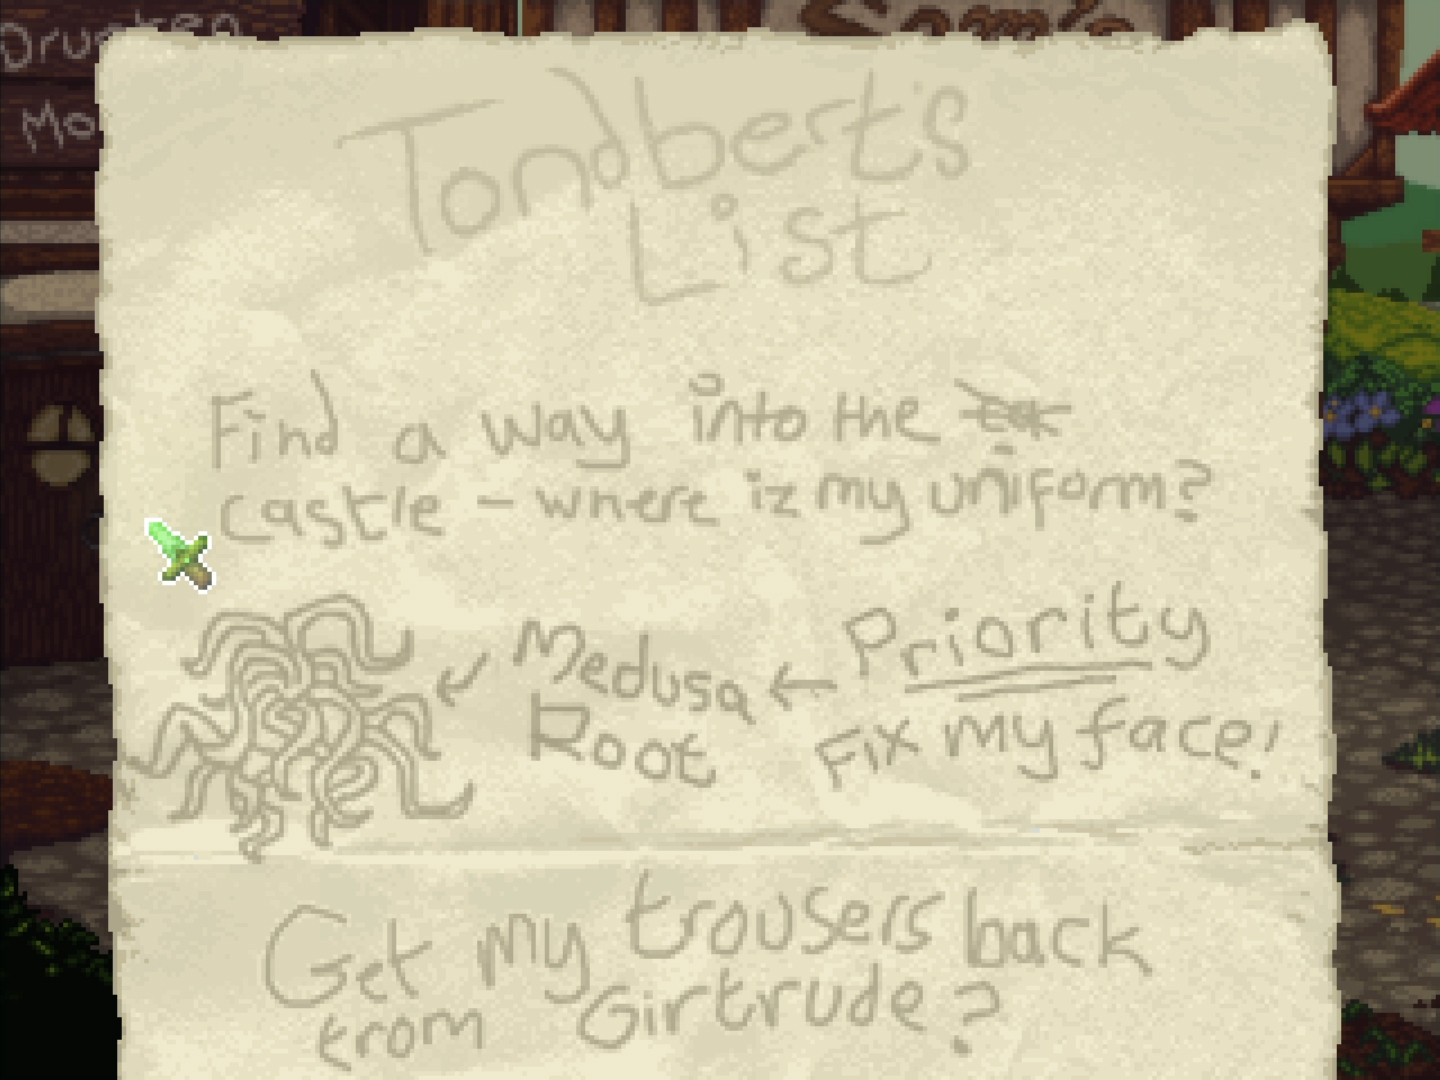 Drunken
Mo
Sam's
Tondbert's
List
Find a way into the
castle - where iz my uniform?
Medusa
Root
Priority
Fix my face!
Get my trousers back
from Girtrude?